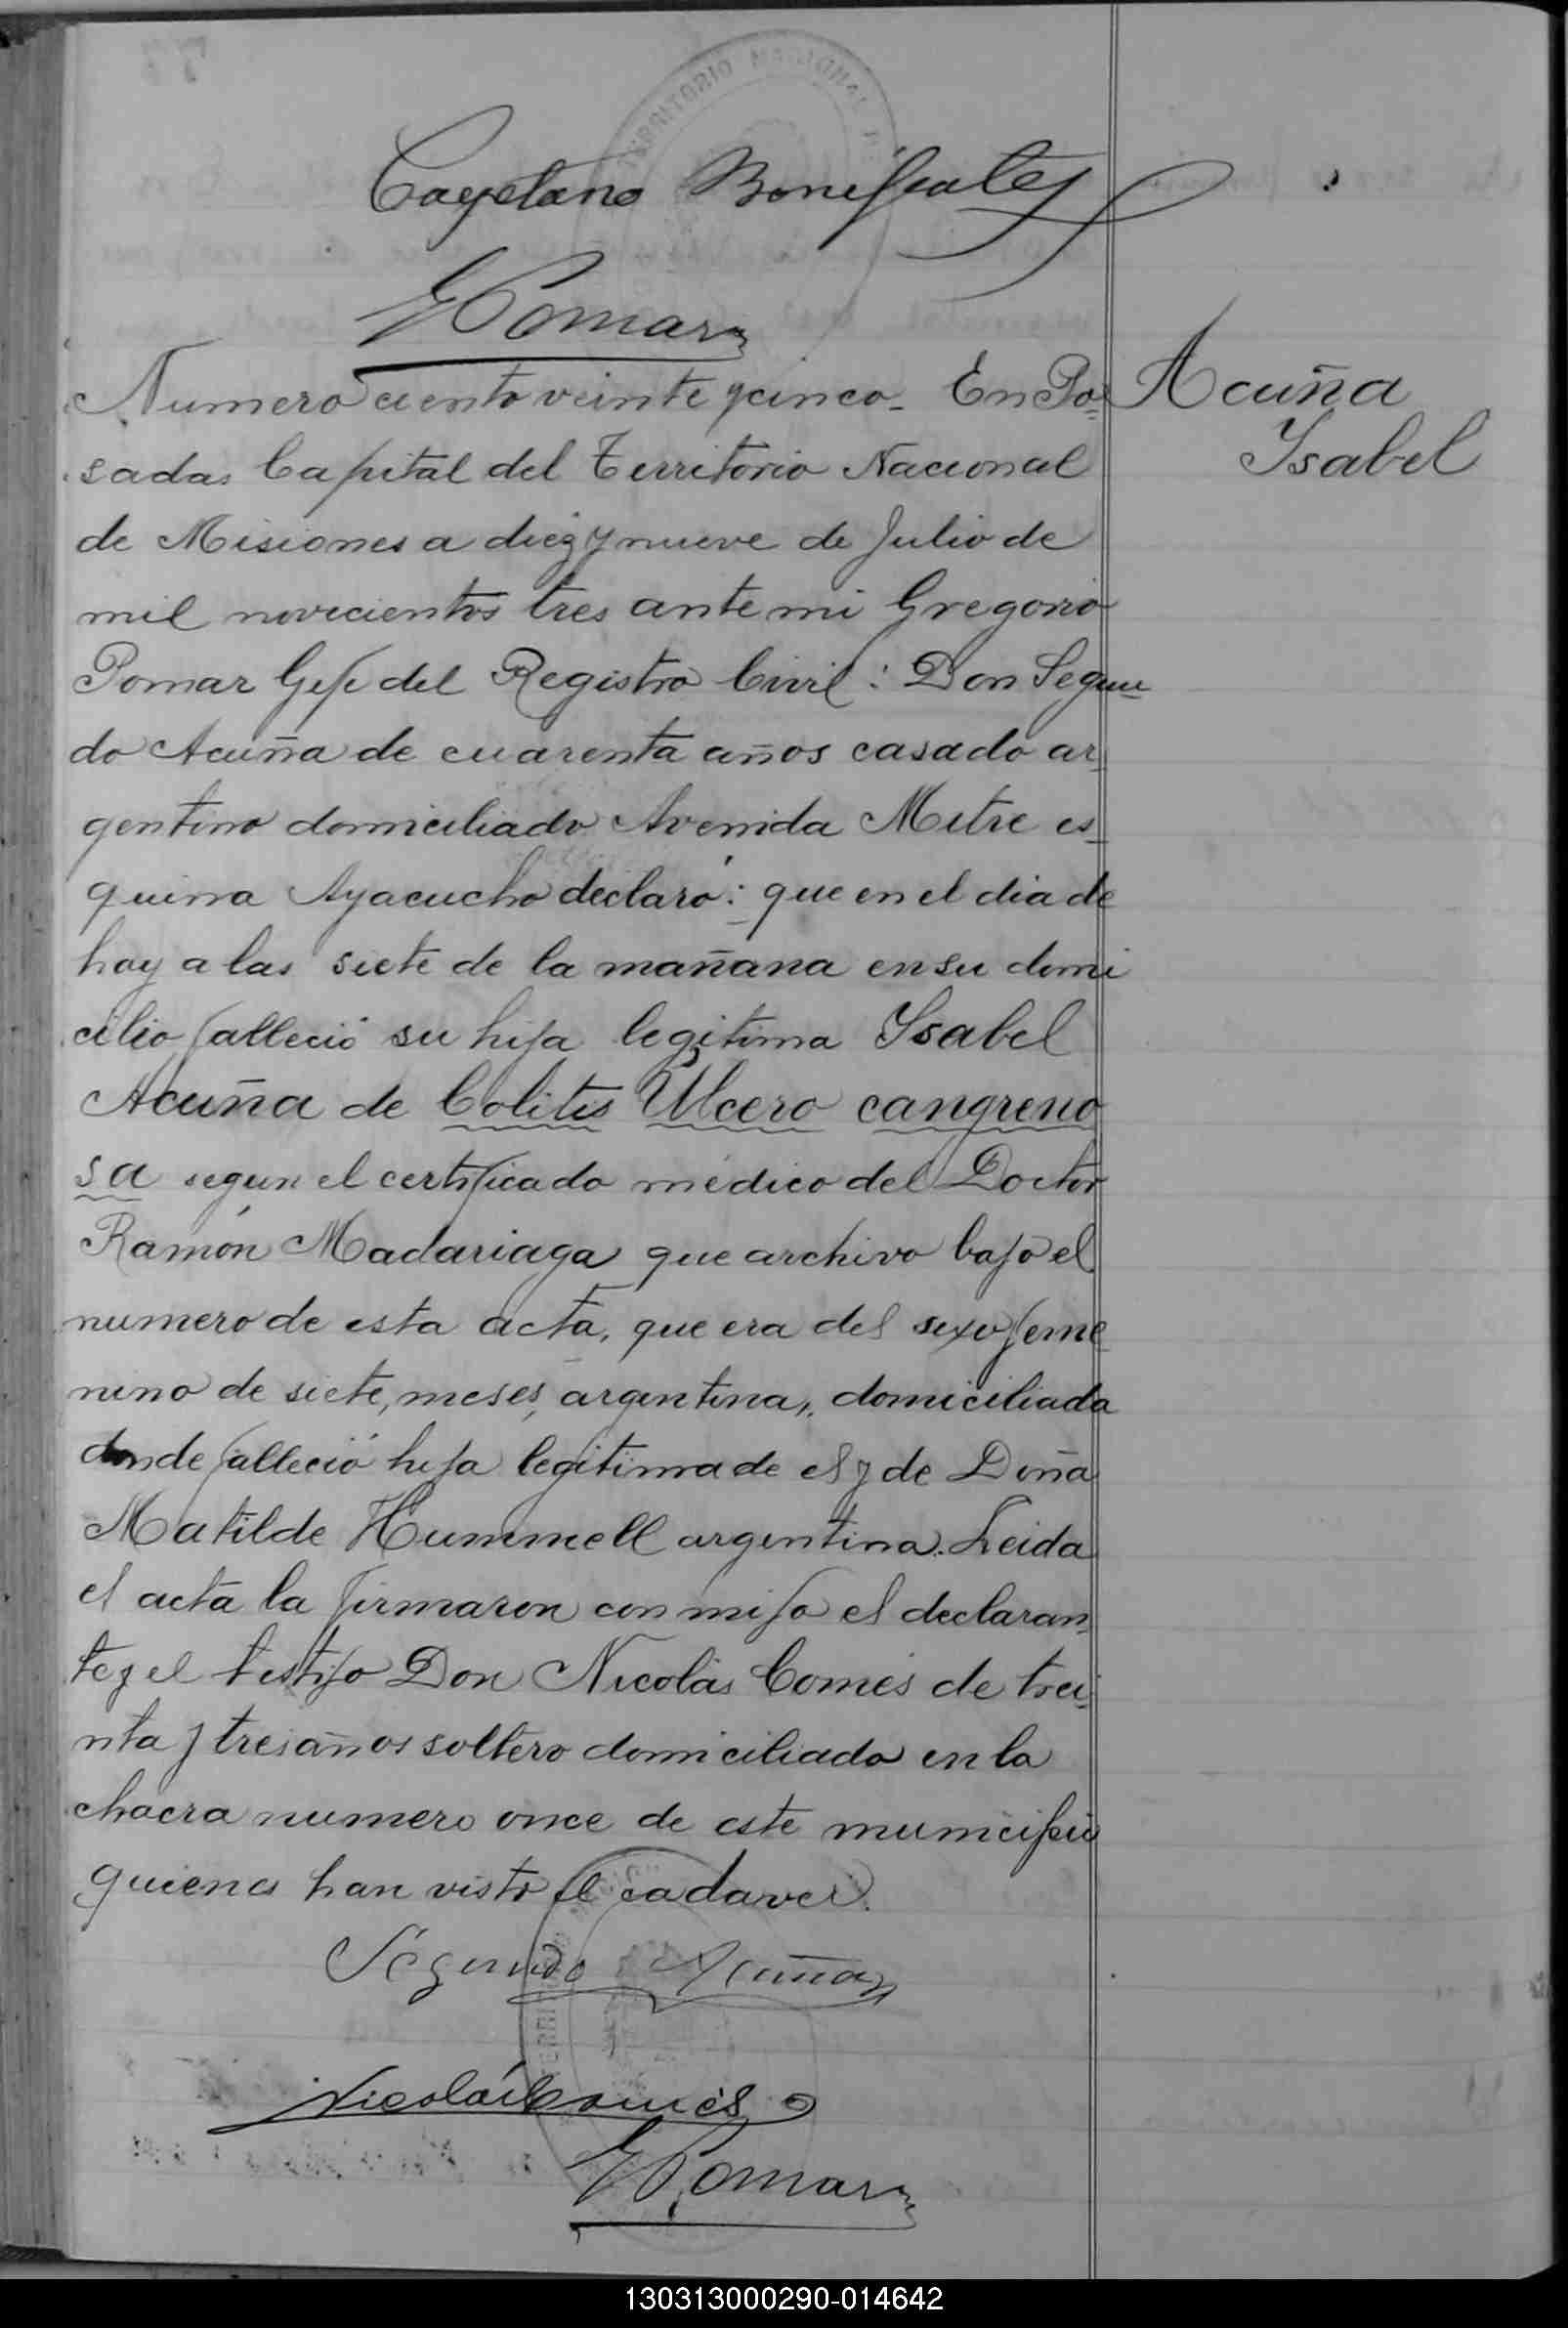 TERRITORIO NACIONAL
Cayetano
G Pomar
Numero ciento veinte y cinco - En Po=
Acuña
sadas Capital del Territorio Nacional
Isabel
de Misiones a diez y nueve de Julio de
mil novecientos tres ante mi Gregorio
Pomar Gefe del Registro Civil: Don Segun=
do Acuña de cuarenta años casado ar_
gentino domiciliado Avenida Mitre es_
quina Ayacucho declaró: que en el dia de
hoy a las siete de la mañana en su domi
cilio falleció su hija legitima Isabel
Acuña de Colitis Ulcero cangreno
sa segun el certificado médico del Doctor
Ramón Madariaga que archivo bajo el
numero de esta acta, que era del sexo feme
nino de siete, meses, argentina, domiciliada
donde falleció hija legitima de el y de Doña
Matilde Hummell argentina. Leida
el acta la firmaron con migo el declaran_
te y el testigo Don Nicolás Comes de trei_
nta y tres años soltero domiciliado en la
chacra numero once de este municipio
quienes han visto el cadaver.
Segundo Acuña
Nicolás Comes
G Pomar
130313000290-014642